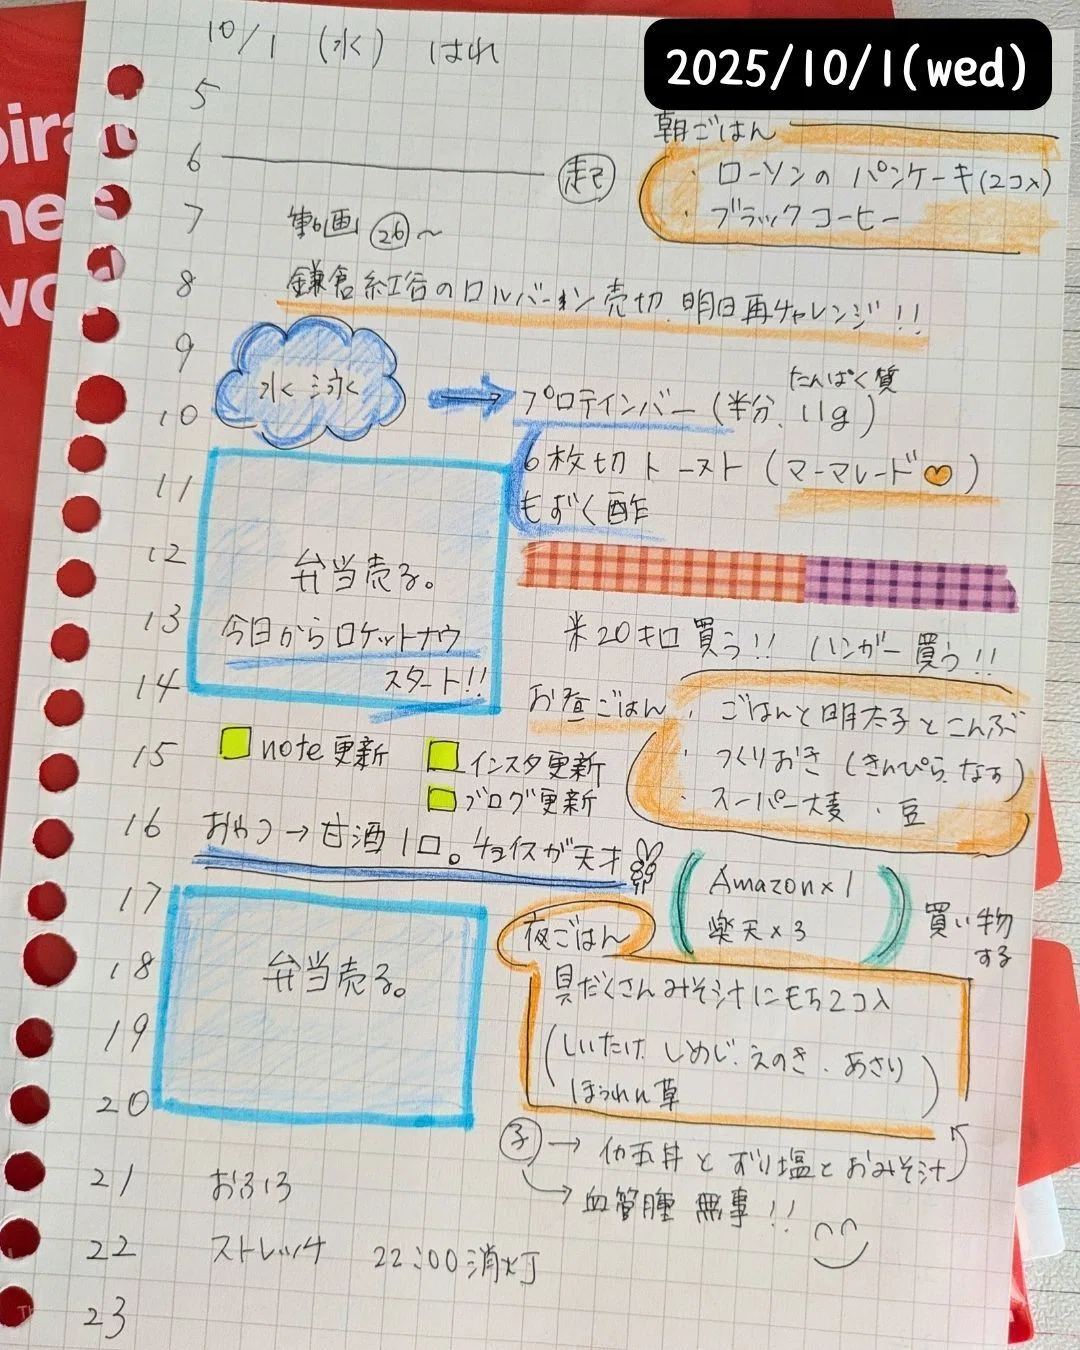 2025/10/1(wed)
10/1 (水) はれ
5
6 起
朝ごはん
・ローソンの パンケーキ(2コ入)
・ブラックコーヒー
7 動画 26〜
8 鎌倉紅谷のロルバーン売切. 明日再チャレンジ!!
9
水泳
10
たんぱく質
プロテインバー (半分. 11g)
6枚切トースト (マーマレード)
もずく酢
11
12 弁当売る。
13 今日からロケットナウ
14 スタート!!
米20キロ買う!! ハンガー買う!!
お昼ごはん ・ごはんと明太子とこんぶ
・つくりおき (きんぴら. なす)
・スーパー大麦 ・豆
15 note更新 インスタ更新
ブログ更新
16 おやつ→甘酒1口。チョイスが天才
Amazon×1
楽天×3
買い物
する
17
18 弁当売る。
19
20
夜ごはん
具だくさんみそ汁にもち2コ入
(しいたけ. しめじ. えのき. あさり
ほうれん草)
子 → 伍五丼と ずり塩とおみそ汁
→ 血管腫 無事!!
21 おふろ
22 ストレッチ 22:00消灯
23